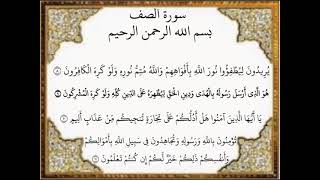 سورة الصف
بسم الله الرحمن الرحيم
يُرِيدُونَ لِيُطْفِؤُوا نُورَ اللَّهِ بِأَفْوَاهِهِمْ وَاللَّهُ مُتِمُّ نُورِهِ وَلَوْ كَرِهَ الْكَافِرُونَ ٨
هُوَ الَّذِي أَرْسَلَ رَسُولَهُ بِالْهُدَى وَدِينِ الْحَقِّ لِيُظْهِرَهُ عَلَى الدِّينِ كُلِّهِ وَلَوْ كَرِهَ الْمُشْرِكُونَ ٩
يَا أَيُّهَا الَّذِينَ آمَنُوا هَلْ أَدُلُّكُمْ عَلَى تِجَارَةٍ تُنجِيكُم مِّنْ عَذَابٍ أَلِيمٍ ١٠
تُؤْمِنُونَ بِاللَّهِ وَرَسُولِهِ وَتُجَاهِدُونَ فِي سَبِيلِ اللَّهِ بِأَمْوَالِكُمْ
وَأَنفُسِكُمْ ذَلِكُمْ خَيْرٌ لَّكُمْ إِن كُنتُمْ تَعْلَمُونَ ١١